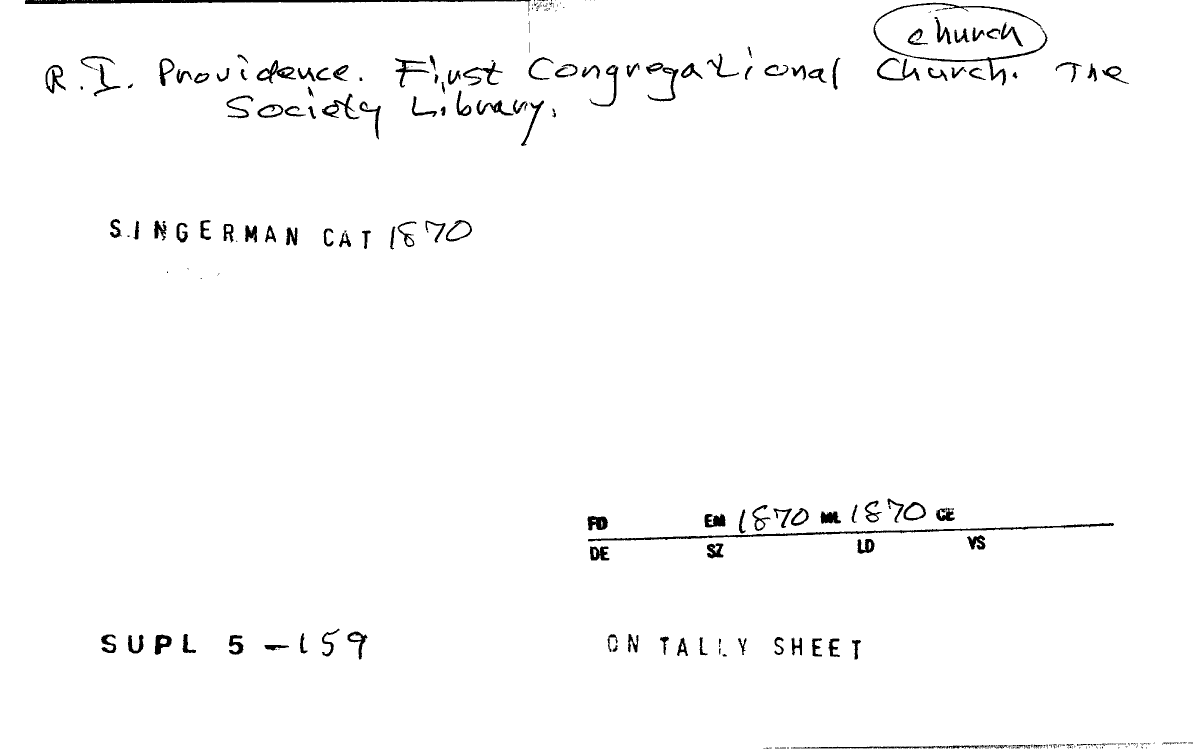 church
R.I. Providence. First Congregational Church. The
Society Library.
SINGERMAN CAT 1870
FD EM 1870 ML 1870 CE
DE SZ LD VS
SUPL 5 -159
ON TALLY SHEET